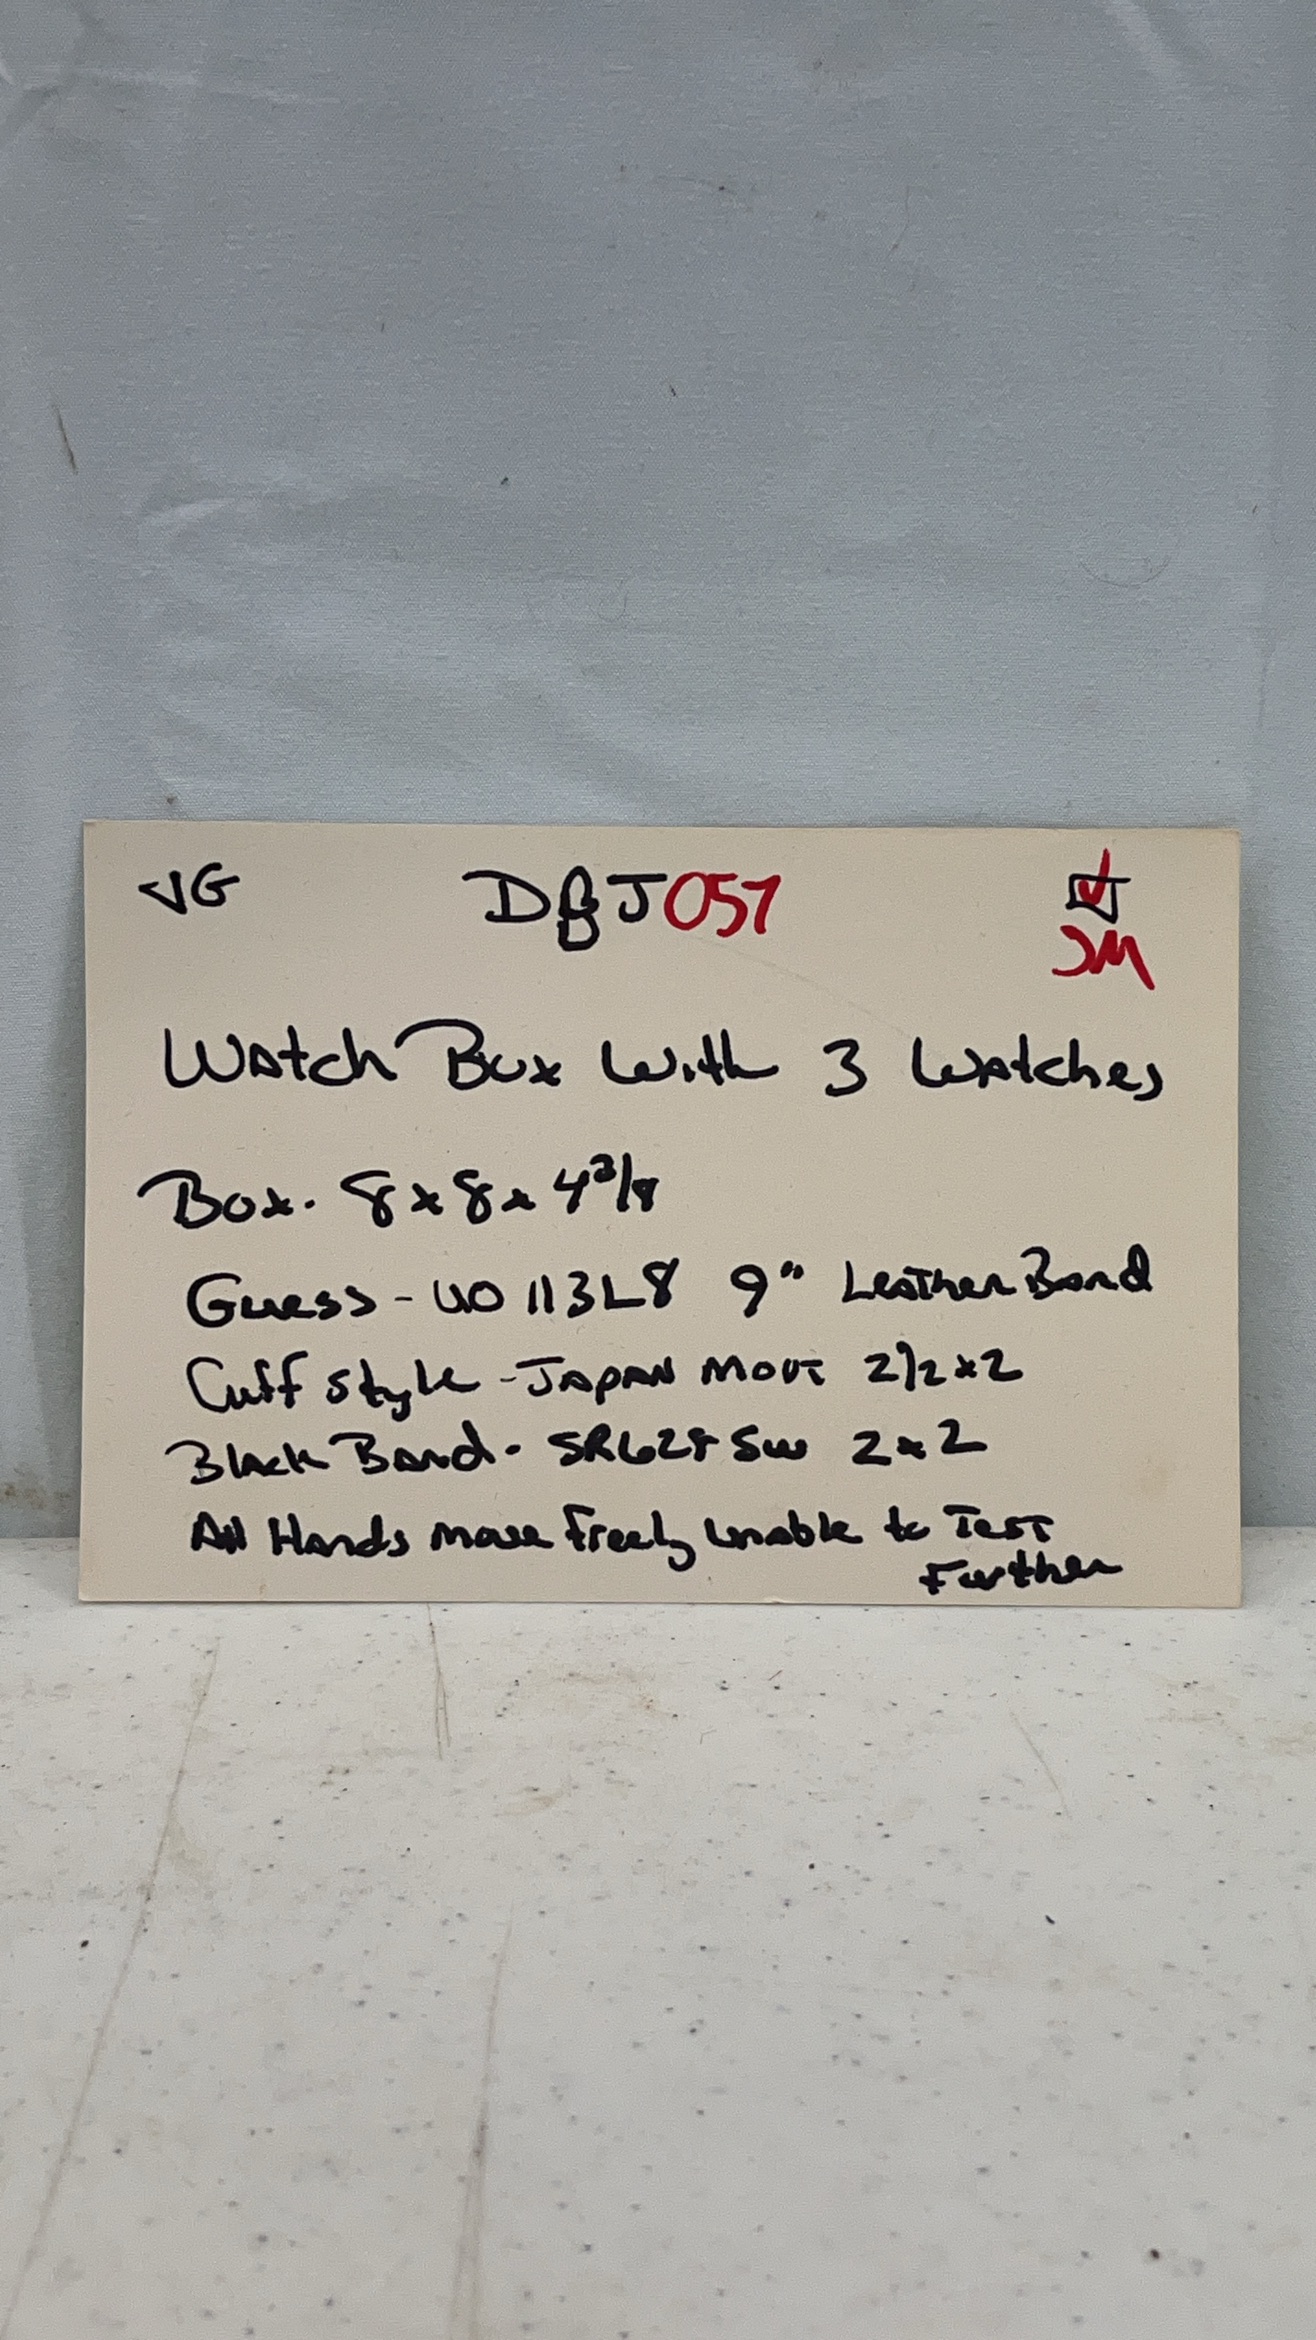 VG DBJ057
JM
Watch Box With 3 Watches
Box. 8x8x 4 3/8
Guess - U0113L8 9" Leather Band
Cuff Style - Japan Movt 2 1/2 x 2
Black Band - SR628SW 2x2
All Hands Move Freely Unable to Test
Further